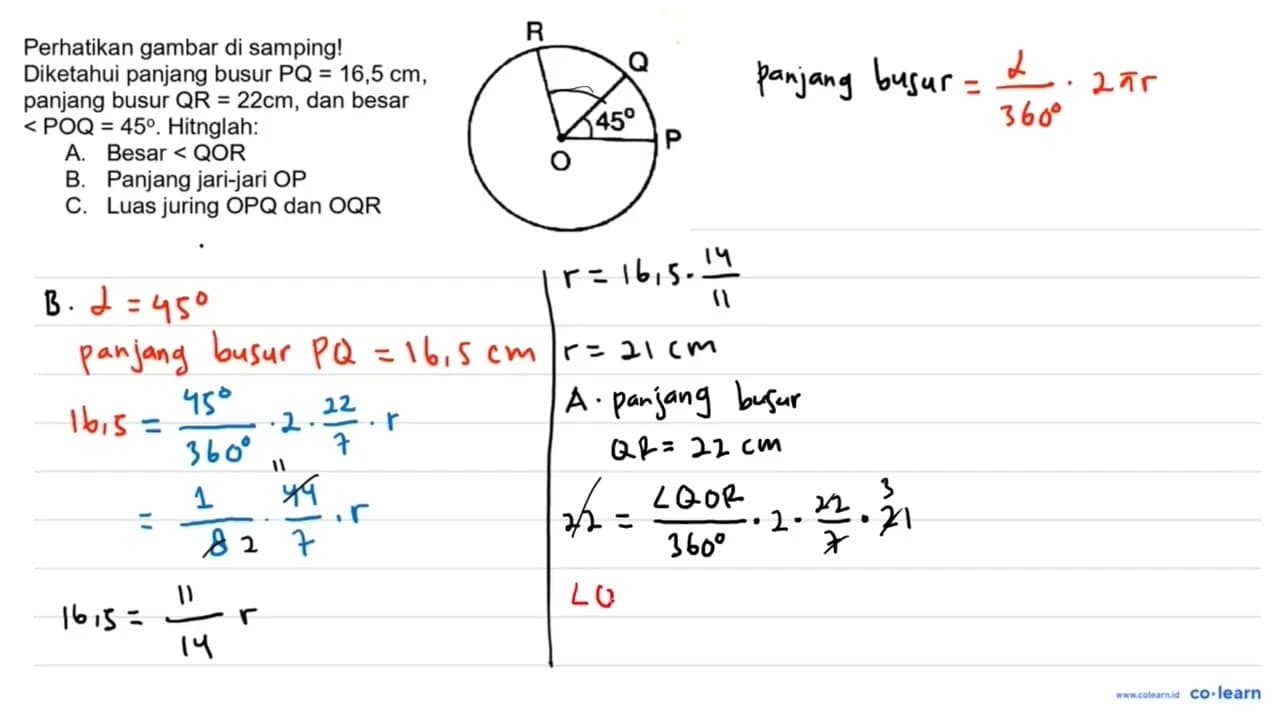 Perhatikan gambar di samping!
Diketahui panjang busur PQ = 16,5 cm,
panjang busur QR = 22cm, dan besar
< POQ = 45°. Hitnglah:
A. Besar < QOR
B. Panjang jari-jari OP
C. Luas juring OPQ dan OQR
R
Q
45°
P
O
panjang busur = α/360° · 2πr
B. α = 45°
panjang busur PQ = 16,5 cm
16,5 = 45°/360° · 2 · 22/7 · r
11
= 1/8 2 · 44/7 · r
16,5 = 11/14 r
r = 16,5 · 14/11
r = 21 cm
A. panjang busur
QR = 22 cm
22 = ∠QOR/360° · 2 · 22/7 · 21 3
∠Q
www.colearn.id co·learn